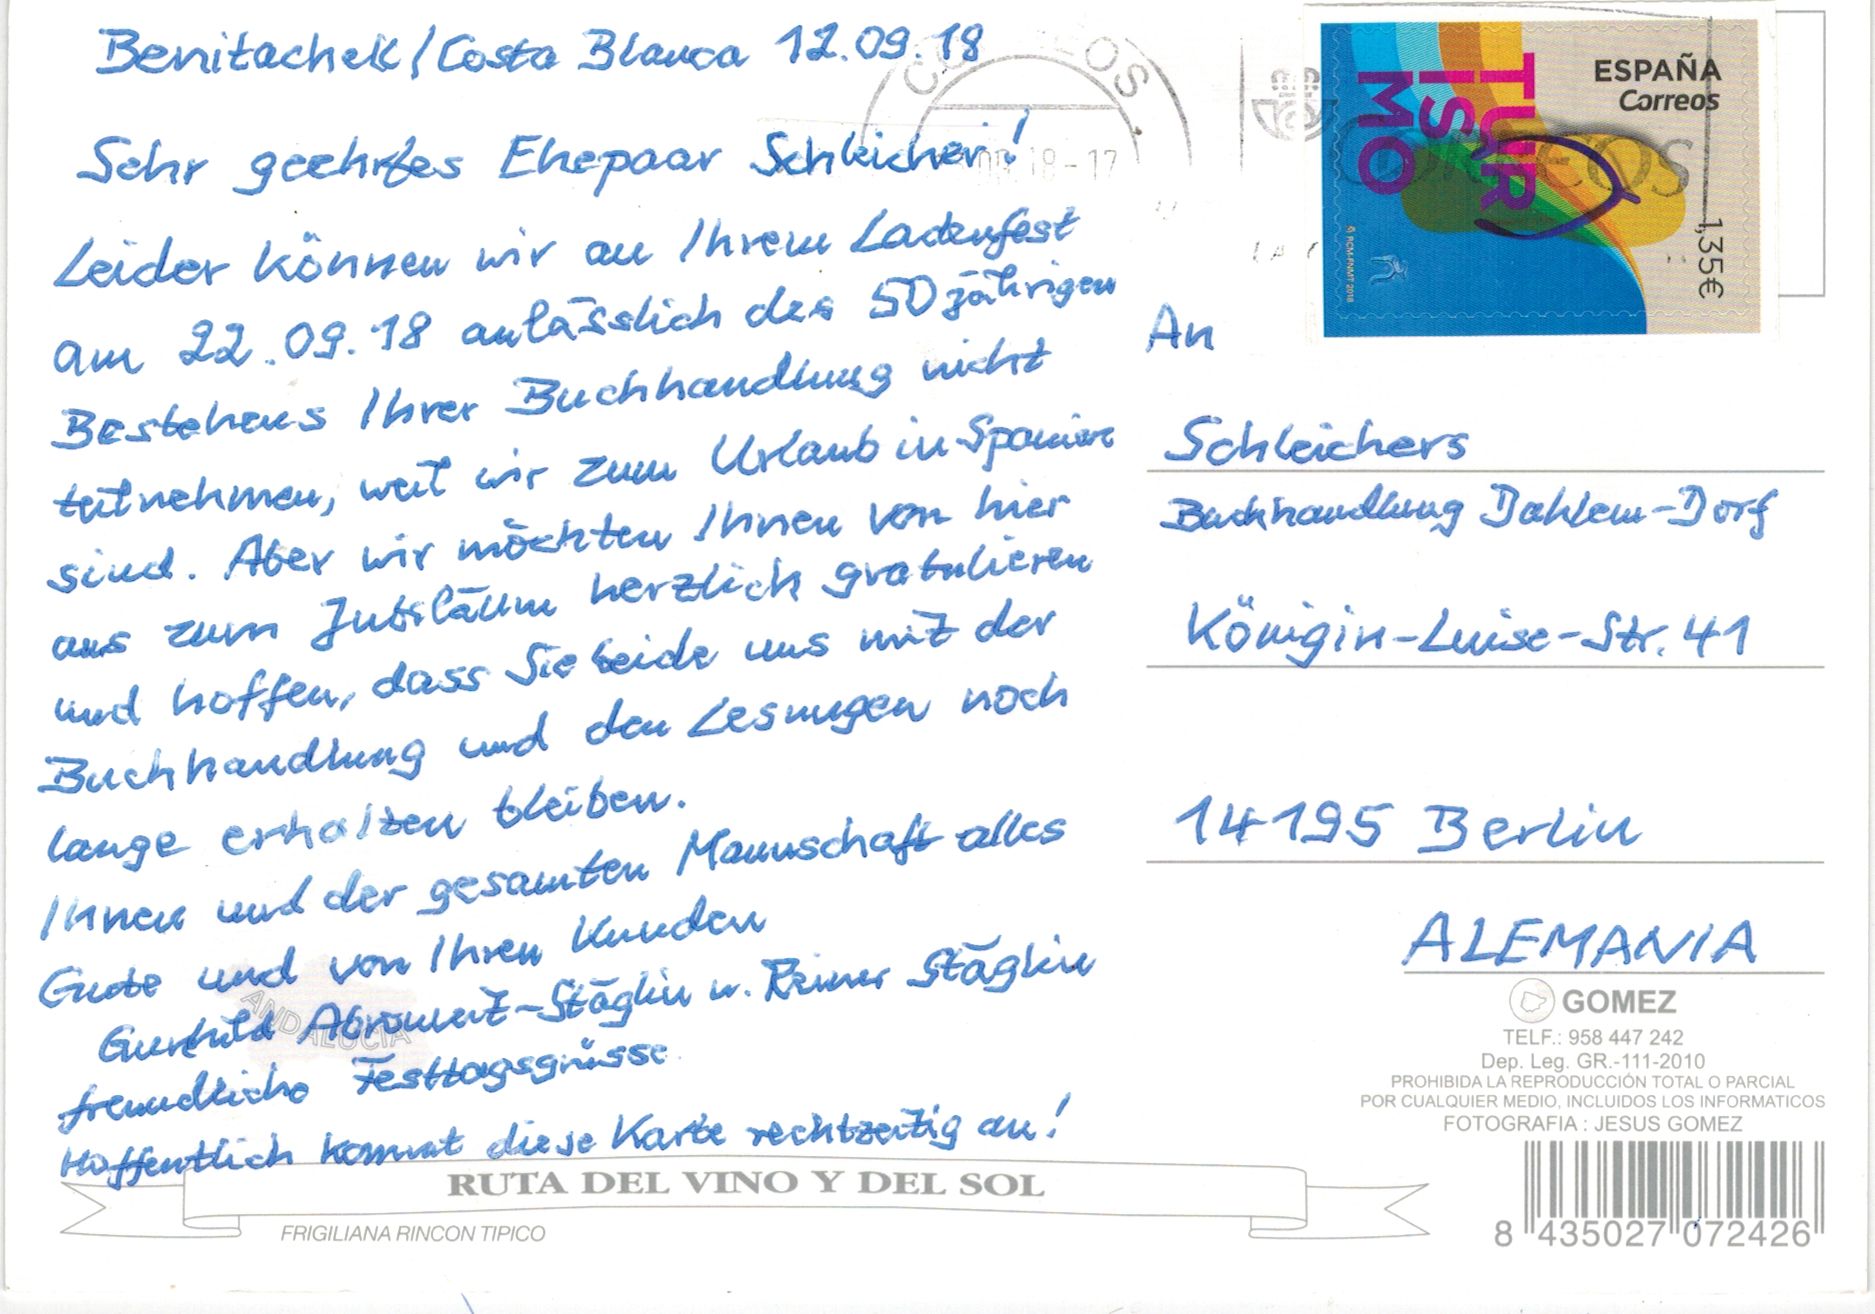 Benitachell/Costa Blanca 12.09.18
Sehr geehrtes Ehepaar Schleicher!
Leider können wir an Ihrem Ladenfest
am 22.09.18 anlässlich des 50jährigen
Bestehens Ihrer Buchhandlung nicht
teilnehmen, weil wir zum Urlaub in Spanien
sind. Aber wir möchten Ihnen von hier
aus zum Jubiläum herzlich gratulieren
und hoffen, dass Sie beide uns mit der
Buchhandlung und den Lesungen noch
lange erhalten bleiben.
Ihnen und der gesamten Mannschaft alles
Gute und von Ihren Kunden
Stäglin u. Reiner Stäglin
freundliche Festtagsgrüsse
Hoffentlich kommt diese Karte rechtzeitig an!
ANDALUCIA
RUTA DEL VINO Y DEL SOL
FRIGILIANA RINCON TIPICO
CORREOS
TURISMO
ESPAÑA
Correos
1,35€
© RCM-FNMT 2018
An
Schleichers
Buchhandlung Dahlem-Dorf
Königin-Luise-Str. 41
14195 Berlin
ALEMANIA
GOMEZ
TELF.: 958 447 242
Dep. Leg. GR.-111-2010
PROHIBIDA LA REPRODUCCIÓN TOTAL O PARCIAL
POR CUALQUIER MEDIO, INCLUIDOS LOS INFORMATICOS
FOTOGRAFIA : JESUS GOMEZ
8 435027 072426